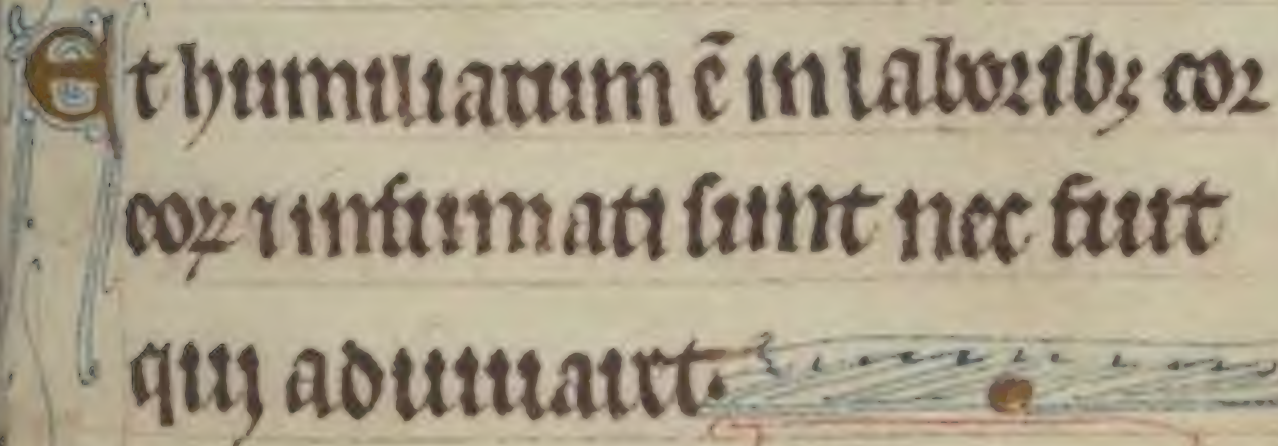 Et humiliatum ē in laboribꝫ cor
coꝝ ⁊ infirmati sunt nec fuit
qui adiuuaret.